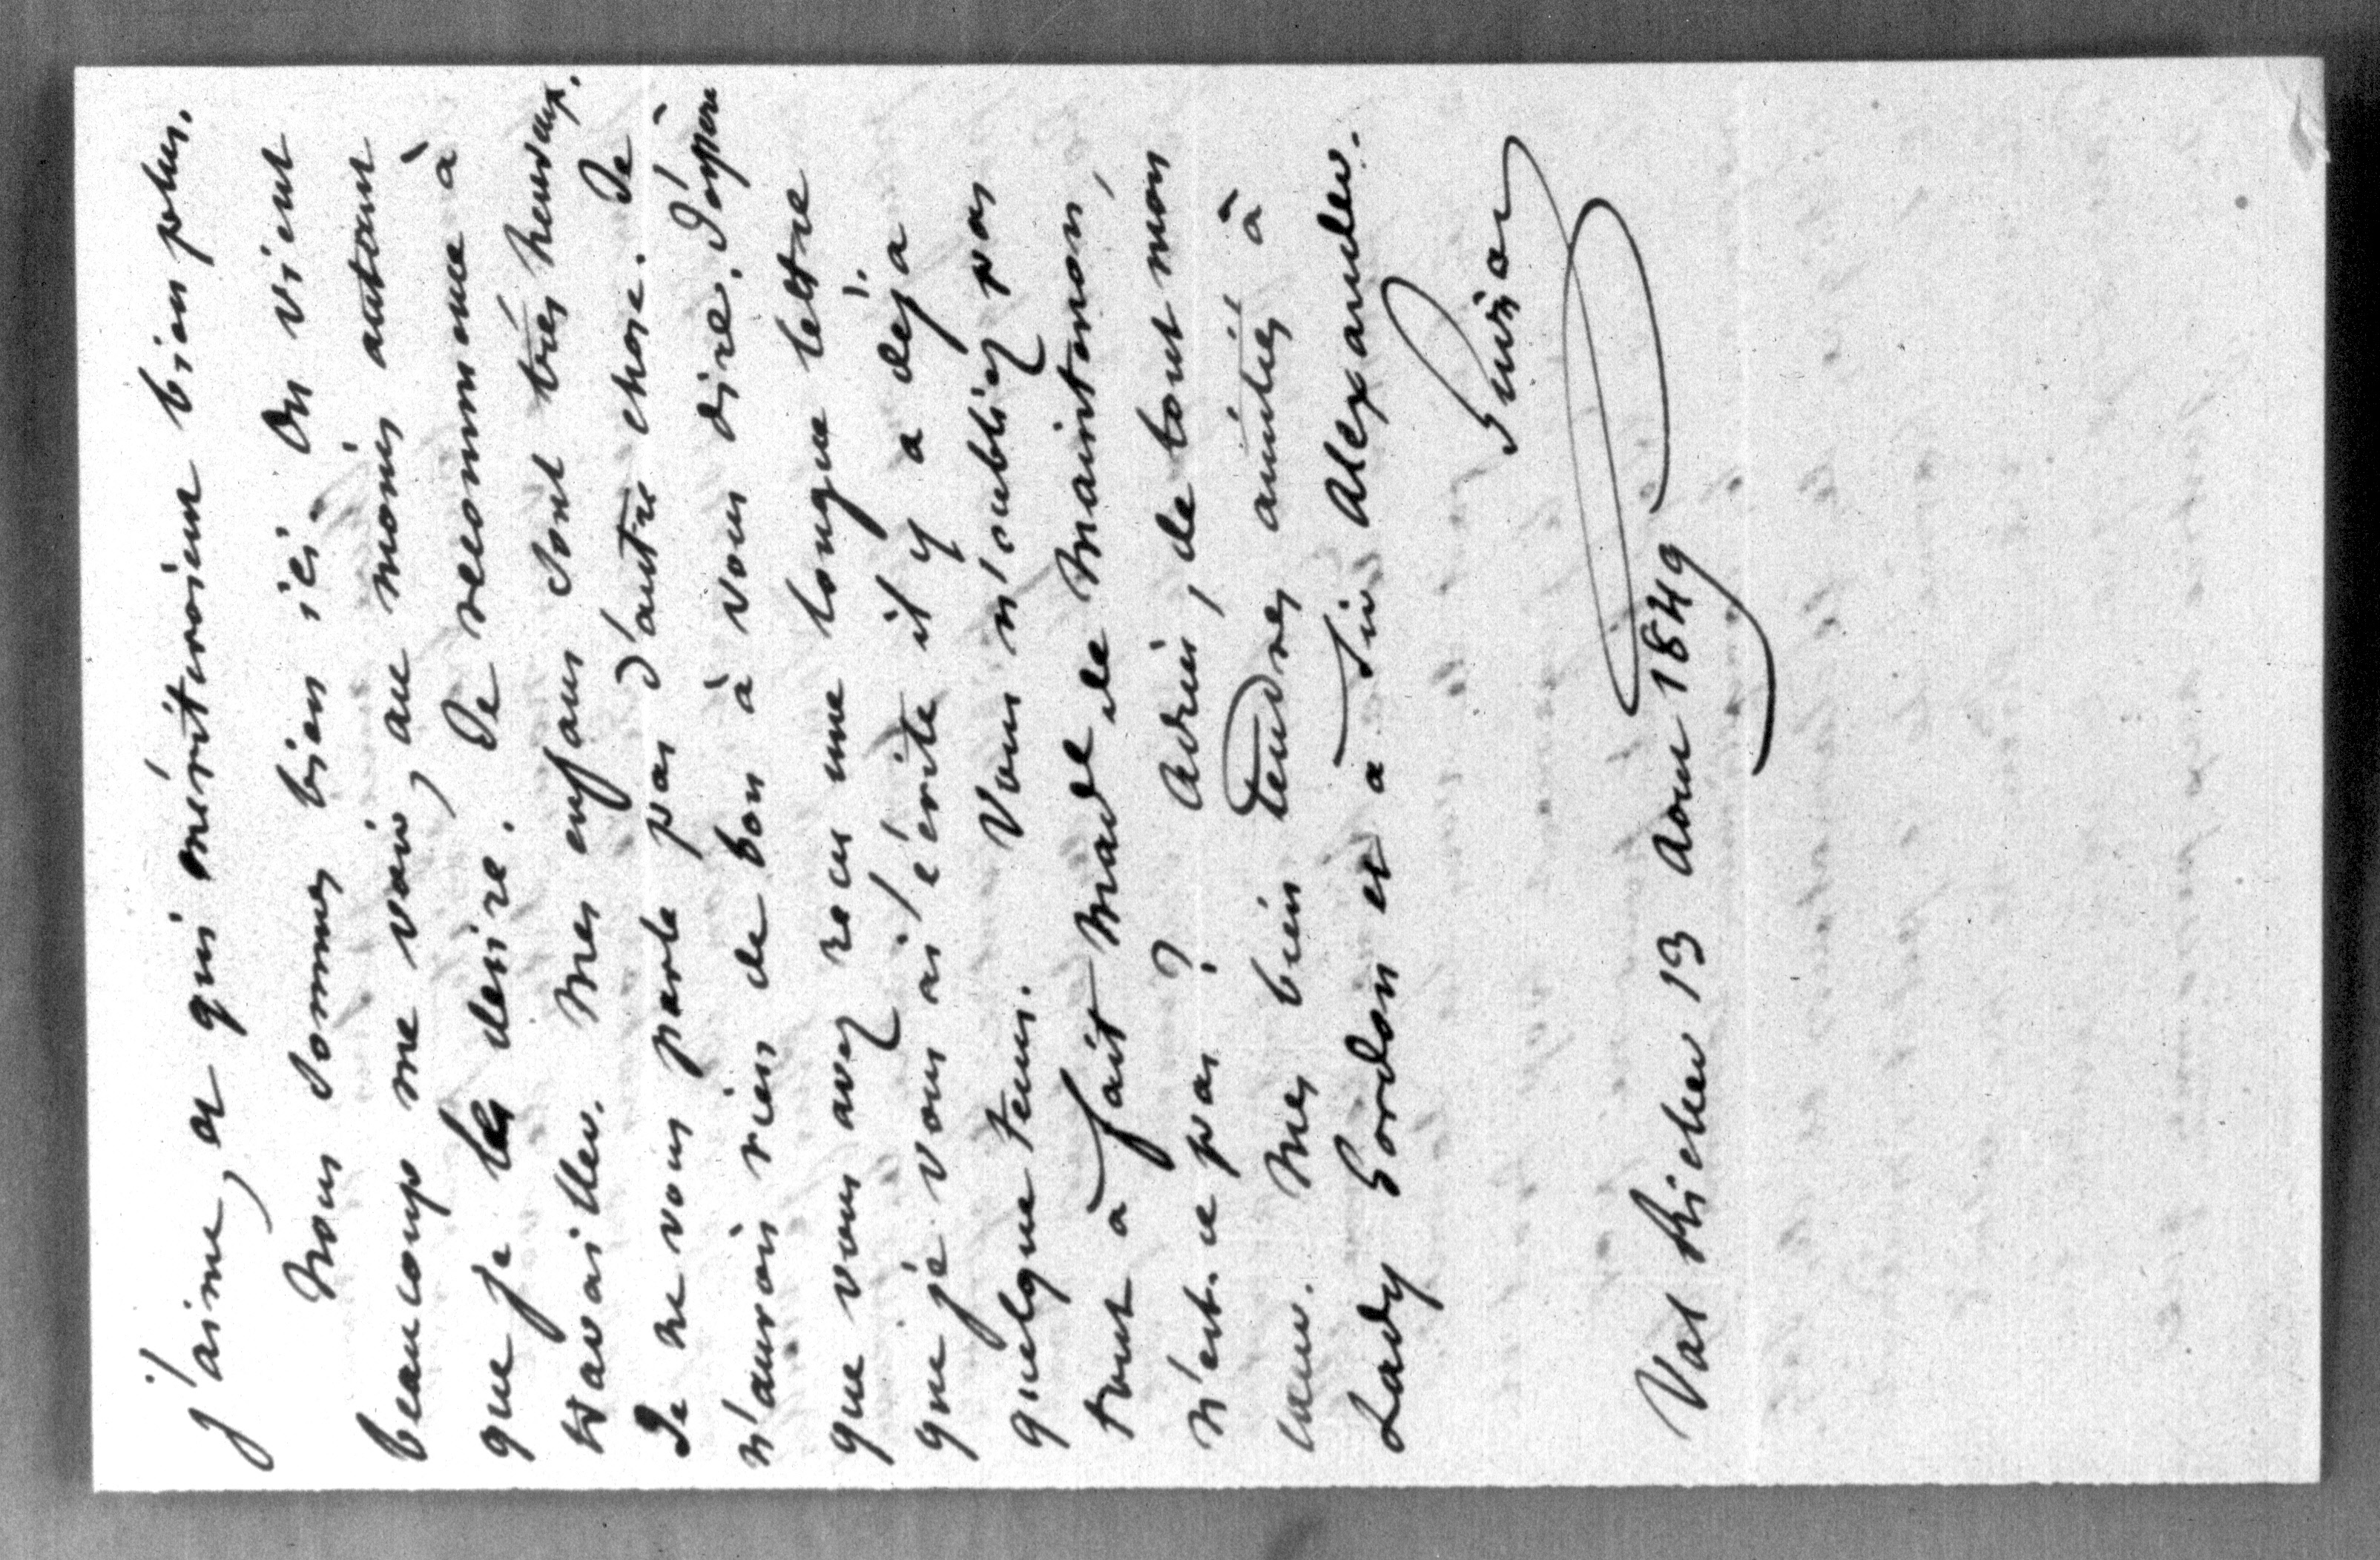 j'aime, et qui mériteroient bien plus.
Nous sommes bien ici. On vient
beaucoup me voir, au moins autant
que je le desire. Je recommence à
travailler. Mes enfans sont très heureux.
Je ne vous parle pas d'autre chose. Je
n'aurois rien de bon à vous dire. J'espère
que vous avez reçu une longue lettre
que je vous ai écrite il y a déjà
quelque tems. Vous n'oubliez pas
tout à fait Mad^e de Maintenon,
n'est-ce pas ? Adieu, de tout mon
cœur. Mes bien tendres amitiés à
Lady Gordon et à Sir Alexander.
Guizot
Val Richer 13 Aout 1849